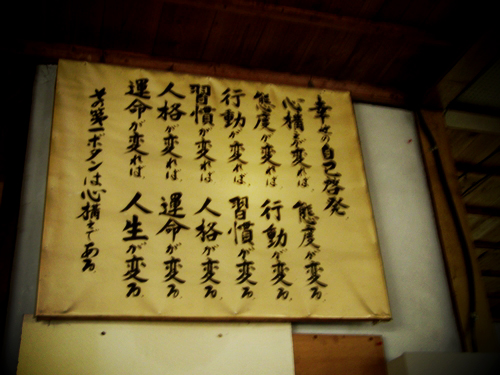 幸せの自己啓発
心構えが変れば、態度が変る。
態度が変れば、行動が変る。
行動が変れば、習慣が変る。
習慣が変れば、人格が変る。
人格が変れば、運命が変る。
運命が変れば、人生が変る。
その第一ボタンは心構えである